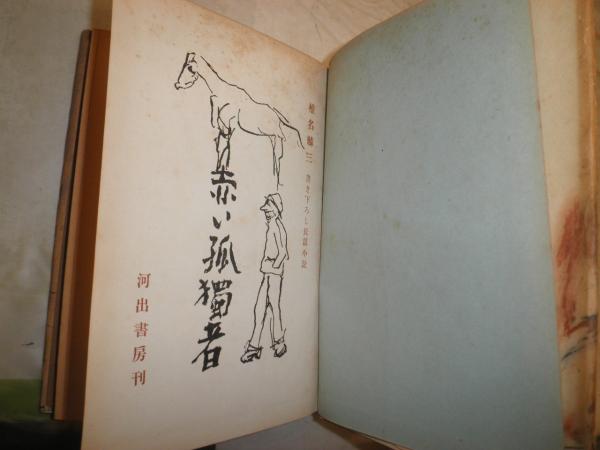 椎名麟三 書き下ろし長篇小説
赤い孤獨者
河出書房刊